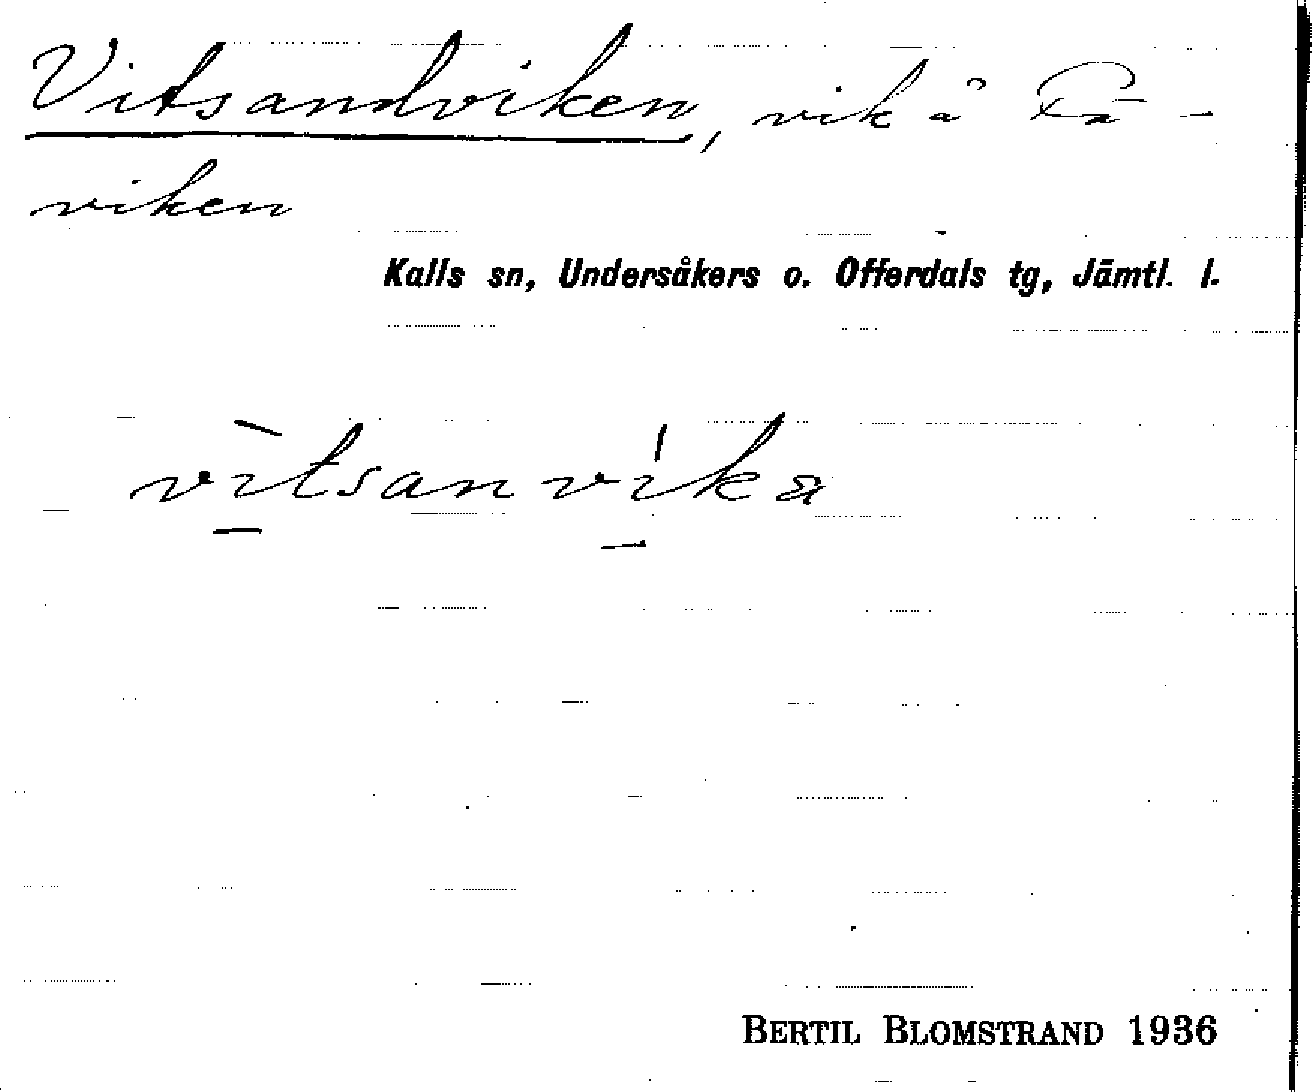 Vitsandviken, vik å Fä-
viken
Kalls sn, Undersåkers o. Offerdals tg, Jämtl. l.
vìtsanvíka
BERTIL BLOMSTRAND 1936